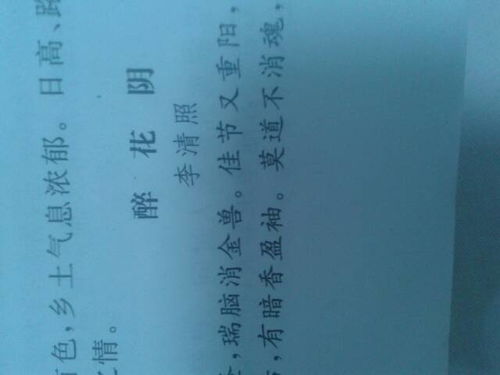 色,乡土气息浓郁。日高、路
情。
醉花阴
李清照
,瑞脑消金兽。佳节又重阳,
,有暗香盈袖。莫道不消魂,